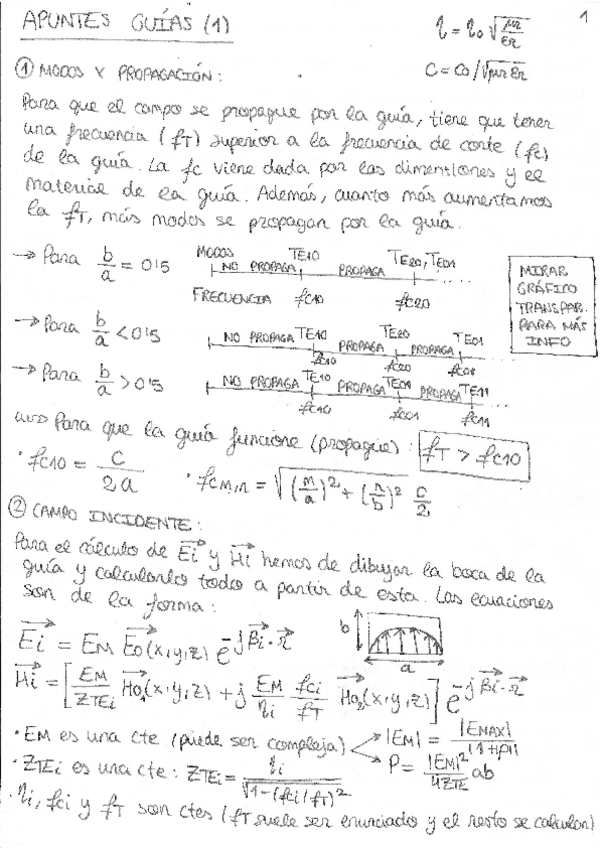 APUNTES GUÍAS (1)
1
η = η₀ √(μr/εr)
① MODOS Y PROPAGACIÓN:
C = C₀/√(μr εr)
Para que el campo se propague por la guía, tiene que tener
una frecuencia (fT) superior a la frecuencia de corte (fc)
de la guía. La fc viene dada por las dimentiones y el
material de la guía. Además, cuanto más aumentamos
la fT, más modos se propagan por la guía.
→ Para b/a = 0'5 MODOS TE10 TE20, TE01
NO PROPAGA PROPAGA ...
FRECUENCIA fc10 fc20
MIRAR
GRÁFICO
TRANSPAR.
PARA MÁS
INFO
→ Para b/a < 0'5 NO PROPAGA TE10 PROPAGA TE20 PROPAGA TE01 ...
fc10 fc20 fc01
→ Para b/a > 0'5 NO PROPAGA TE10 PROPAGA TE01 PROPAGA TE11 ...
fc10 fc01 fc11
Para que la guía funcione (propague): fT > fc10
· fc10 = C/2a · fcm,n = √((m/a)² + (n/b)²) C/2
② CAMPO INCIDENTE:
Para el cálculo de Ei y Hi hemos de dibujar la boca de la
guía y calcularlo todo a partir de esta. Las ecuaciones
son de la forma:
Ei = EM E0(x,y,z) e^(-j βi·r)
b
a
Hi = [EM/ZTEi H01(x,y,z) + j EM/ηi fci/fT H02(x,y,z)] e^(-j βi·r)
· EM es una cte (puede ser compleja) |EM| = |EMAX|/|1+ρ|
P = |EM|²/4ZTE ab
· ZTEi es una cte: ZTEi = ηi/√(1-(fci/fT)²)
· ηi, fci y fT son ctes (fT suele ser enunciado y el resto se calculan)